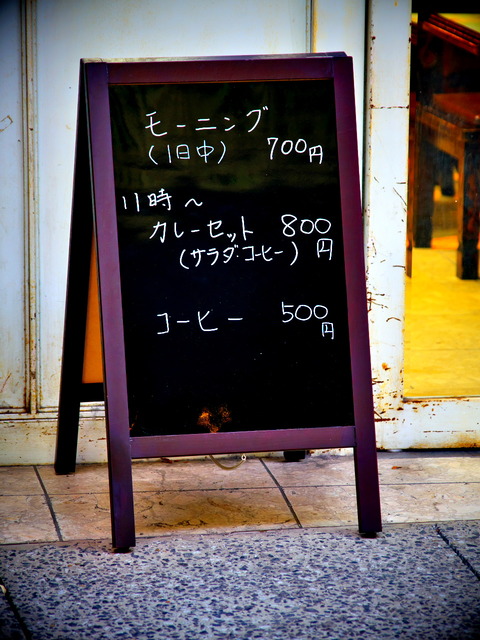 モーニング
(1日中) 700円
11時～
カレーセット 800円
(サラダ・コーヒー)
コーヒー 500円